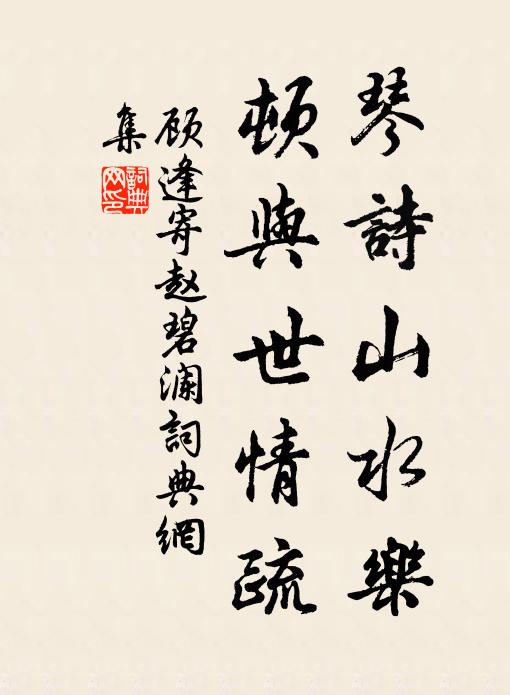 琴詩山水樂
頓與世情疏
顾逢寄赵碧澜詞典網
集
詞典
网印